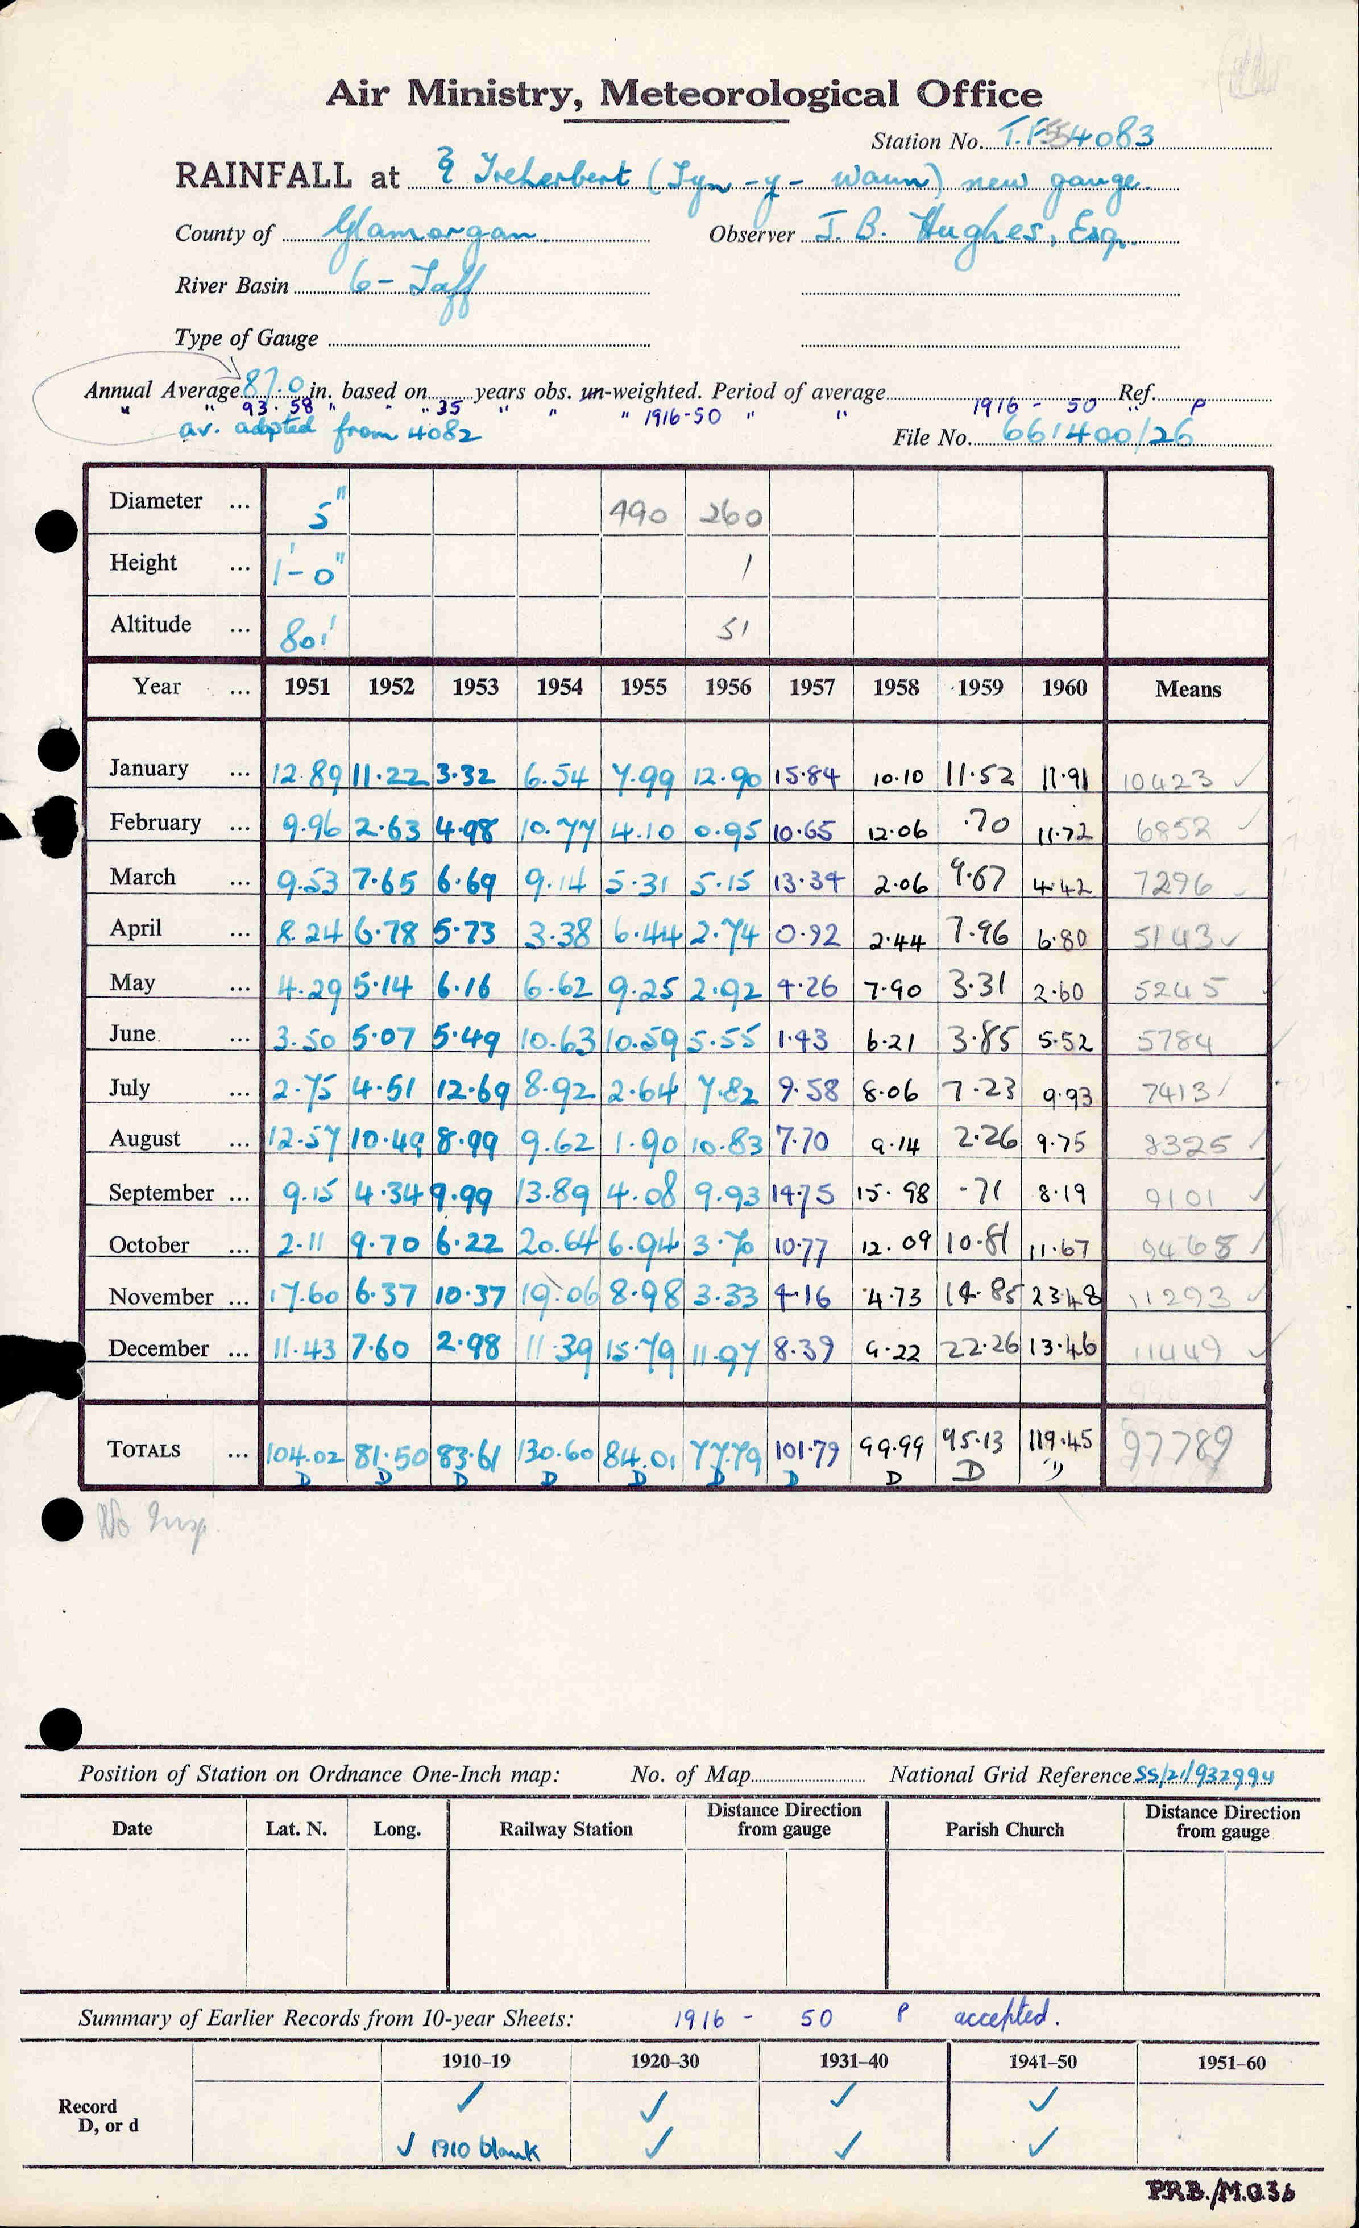 Air Ministry, Meteorological Office
Station No. T.F 4083
RAINFALL at & Treherbert (Tyn-y-waun) new gauge.
County of Glamorgan. Observer J. B. Hughes, Esq.
River Basin 6 - Taff
Type of Gauge
Annual Average 87.0 in. based on years obs. un-weighted. Period of average Ref.
" " 93.58 " " " 35 " " " 1916-50 " " 1916 - 50 " P
av. adopted from 4082 File No. 661400/26
Diameter ... 5" 490 260
Height ... 1'-0" 1
Altitude ... 801' 51
Year ... 1951 1952 1953 1954 1955 1956 1957 1958 1959 1960 Means
January ... 12.89 11.22 3.32 6.54 7.99 12.90 15.84 10.10 11.52 11.91 10423 ✓
February ... 9.96 2.63 4.98 10.77 4.10 0.95 10.65 12.06 .70 11.72 6852 ✓
March ... 9.53 7.65 6.69 9.14 5.31 5.15 13.34 2.06 9.67 4.42 7296 ✓
April ... 8.24 6.78 5.73 3.38 6.44 2.74 0.92 2.44 7.96 6.80 5143 ✓
May ... 4.29 5.14 6.16 6.62 9.25 2.92 4.26 7.90 3.31 2.60 5245
June ... 3.50 5.07 5.49 10.63 10.59 5.55 1.43 6.21 3.85 5.52 5784
July ... 2.75 4.51 12.69 8.92 2.64 7.82 9.58 8.06 7.23 9.93 7413 /
August ... 12.57 10.49 8.99 9.62 1.90 10.83 7.70 9.14 2.26 9.75 8325 ✓
September ... 9.15 4.34 9.99 13.89 4.08 9.93 14.75 15.98 .71 8.19 9101 ✓
October ... 2.11 9.70 6.22 20.64 6.94 3.70 10.77 12.09 10.81 11.67 9468 /
November ... 17.60 6.37 10.37 19.06 8.98 3.33 4.16 4.73 14.85 23.48 11293 ✓
December ... 11.43 7.60 2.98 11.39 15.79 11.97 8.39 9.22 22.26 13.46 11449 ✓
TOTALS ... 104.02 81.50 83.61 130.60 84.01 77.79 101.79 99.99 95.13 119.45 97789
D D D D D D D D D D
No Insp.
Position of Station on Ordnance One-Inch map: No. of Map National Grid Reference SS/21/932994
Date Lat. N. Long. Railway Station Distance Direction from gauge Parish Church Distance Direction from gauge
Summary of Earlier Records from 10-year Sheets: 1916 - 50 P accepted.
1910–19 1920–30 1931–40 1941–50 1951–60
Record ✓ ✓ ✓ ✓
D, or d ✓ 1910 blank ✓ ✓ ✓
P.R.B./M.O.36